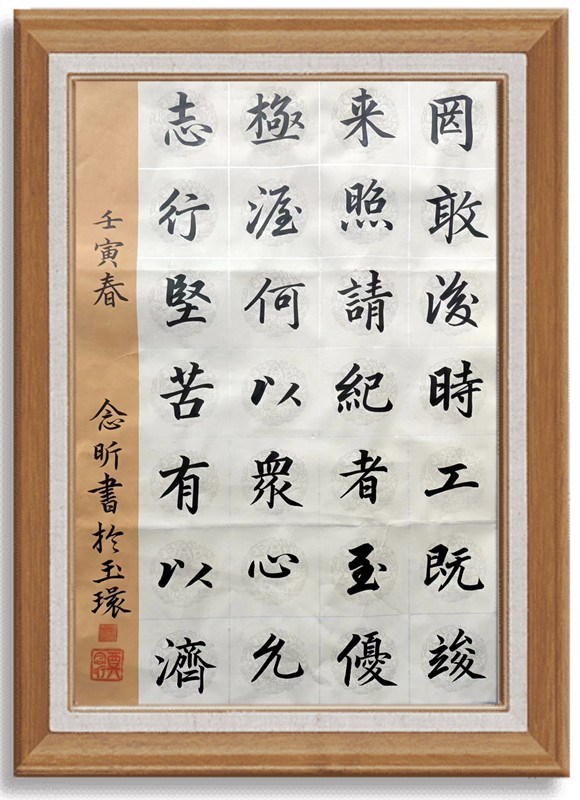 罔敢後時工既竣
来照請紀者至優
極渥何以衆心允
志行堅苦有以濟
壬寅春 念昕書於玉環